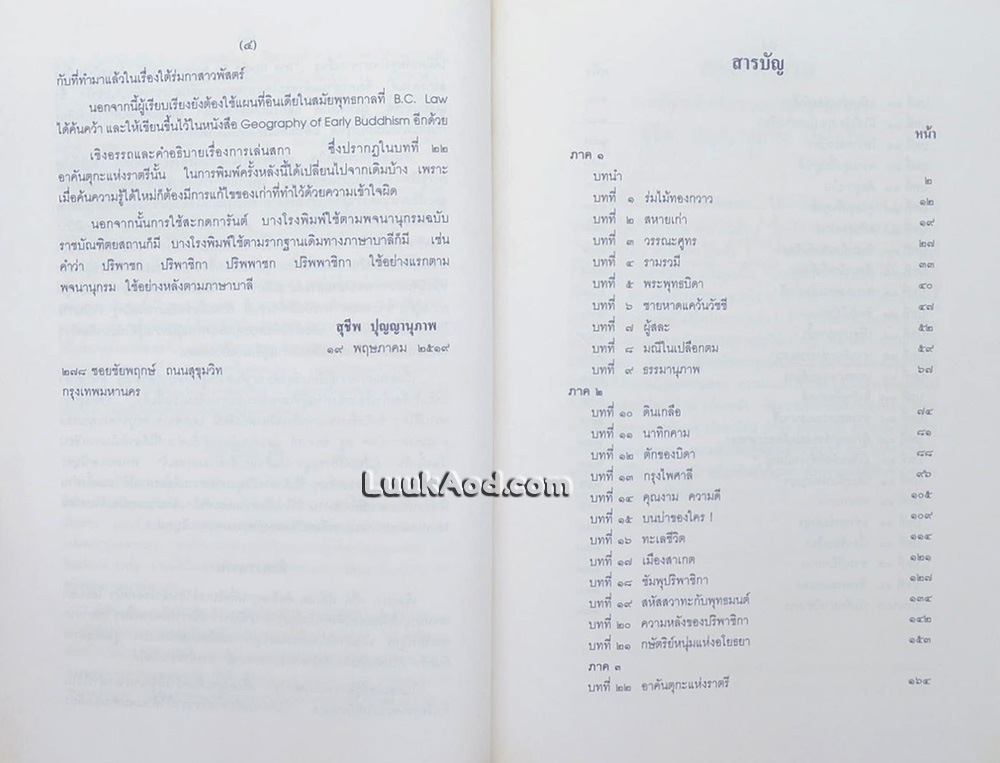 (๔)
กับที่ทำมาแล้วในเรื่องใต้ร่มกาสาวพัสตร์
นอกจากนี้ผู้เรียบเรียงยังต้องใช้แผนที่อินเดียในสมัยพุทธกาลที่ B.C. Law
ได้ค้นคว้า และให้เขียนขึ้นไว้ในหนังสือ Geography of Early Buddhism อีกด้วย
เชิงอรรถและคำอธิบายเรื่องการเล่นสกา ซึ่งปรากฏในบทที่ ๒๒
อาคันตุกะแห่งราตรีนั้น ในการพิมพ์ครั้งหลังนี้ได้เปลี่ยนไปจากเดิมบ้าง เพราะ
เมื่อค้นความรู้ได้ใหม่ก็ต้องมีการแก้ไขของเก่าที่ทำไว้ด้วยความเข้าใจผิด
นอกจากนั้นการใช้สะกดการันต์ บางโรงพิมพ์ใช้ตามพจนานุกรมฉบับ
ราชบัณฑิตยสถานก็มี บางโรงพิมพ์ใช้ตามรากฐานเดิมทางภาษาบาลีก็มี เช่น
คำว่า ปริพาชก ปริพาชิกา ปริพพาชก ปริพพาชิกา ใช้อย่างแรกตาม
พจนานุกรม ใช้อย่างหลังตามภาษาบาลี
สุชีพ ปุญญานุภาพ
๑๙ พฤษภาคม ๒๕๑๙
๒๗๘ ซอยชัยพฤกษ์ ถนนสุขุมวิท
กรุงเทพมหานคร
สารบัญ
หน้า
ภาค ๑
บทนำ ๒
บทที่ ๑ ร่มไม้ทองกวาว ๑๒
บทที่ ๒ สหายเก่า ๑๙
บทที่ ๓ วรรณะศูทร ๒๗
บทที่ ๔ รามรวมี ๓๓
บทที่ ๕ พระพุทธบิดา ๔๐
บทที่ ๖ ชายหาดแคว้นวัชชี ๔๗
บทที่ ๗ ผู้สละ ๕๒
บทที่ ๘ มณีในเปลือกตม ๕๙
บทที่ ๙ ธรรมานุภาพ ๖๗
ภาค ๒
บทที่ ๑๐ ดินเกลือ ๗๔
บทที่ ๑๑ นาทิกคาม ๘๑
บทที่ ๑๒ ตักของบิดา ๘๘
บทที่ ๑๓ กรุงไพศาลี ๙๖
บทที่ ๑๔ คุณงาม ความดี ๑๐๕
บทที่ ๑๕ บนบ่าของใคร ! ๑๐๙
บทที่ ๑๖ ทะเลชีวิต ๑๑๔
บทที่ ๑๗ เมืองสาเกต ๑๒๑
บทที่ ๑๘ ชัมพุปริพาชิกา ๑๒๗
บทที่ ๑๙ สหัสสวาทะกับพุทธมนต์ ๑๓๔
บทที่ ๒๐ ความหลังของปริพาชิกา ๑๔๒
บทที่ ๒๑ กษัตริย์หนุ่มแห่งอโยธยา ๑๕๓
ภาค ๓
บทที่ ๒๒ อาคันตุกะแห่งราตรี ๑๖๔
LuukAod.com